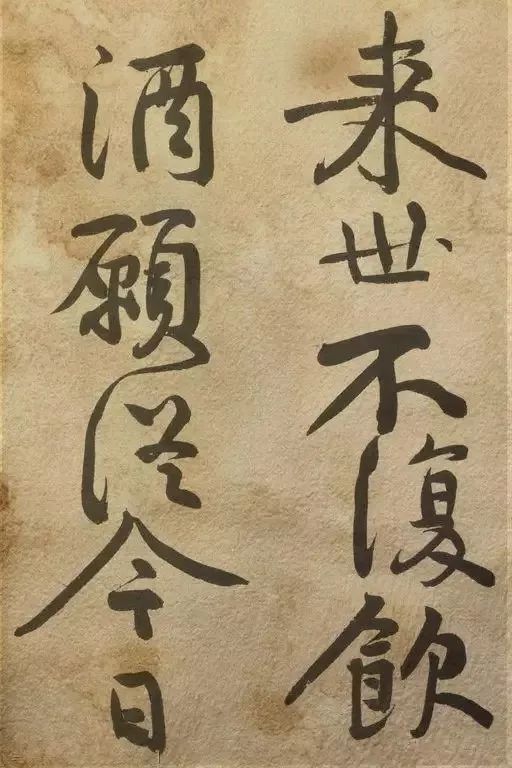 来世不復飲
酒願従今日